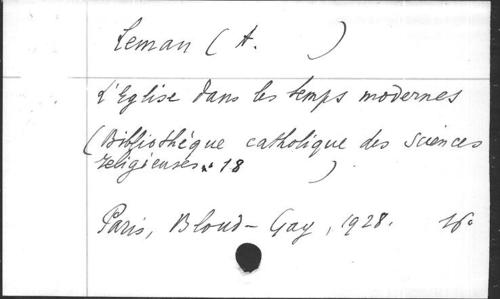 Leman (A. )
L'Eglise dans les temps modernes
(Bibliothéque catholique des sciences
religieuses n° 18 )
Paris, Bloud-Gay, 1928. 16°